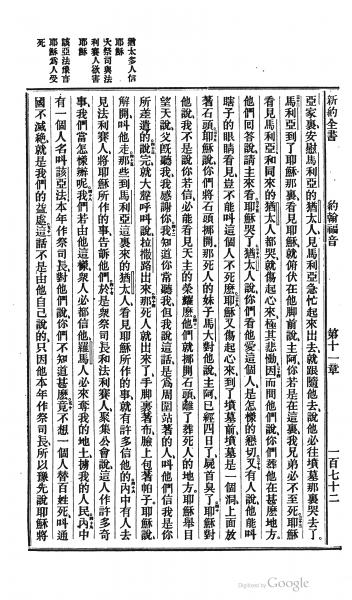 新約全書
約翰福音
第十一章
一百七十二
亞家裏、安慰馬利亞的猶太人、見馬利亞急忙起來出去、就跟隨他去、說、他必往墳墓那裏哭去了。
馬利亞到了耶穌那裏、看見耶穌、就俯伏在他脚前、說、主阿、你若是在這裏、我兄弟必不至死、耶穌
看見馬利亞和同來的猶太人都哭、就傷起心來、極其悲慟、因而問他們說、你們葬他在甚麽地方、
他們回答說、請主來看、耶穌哭了、猶太人說、你們看他愛這個人、是怎樣的懇切、又有人說、他能叫
瞎子的眼睛看見、豈不能叫這個人不死麽、耶穌又傷起心來、到了墳墓前、墳墓是一個洞、上面放
著石頭、耶穌說、你們將石頭挪開、那死人的妹子馬大對他說、主阿、已經四日了、屍首臭了、耶穌對
他說、我不是說你若信、必能看見天主的榮耀麽、他們就挪開石頭、離了葬死人的地方、耶穌舉目
望天說、父旣聽我、我感謝你、我知道你常聽我、但我說這話、是爲周圍站著的人、叫他們信我是你
所差遣的、說完、就大聲呼叫說、拉撒路出來、那死人就出來了、手脚裹著布、臉上包著帕子、耶穌說、
解開、叫他走、那些到馬利亞這裏來的猶太人、看見耶穌所作的事、就有許多信他的、內中有人去
見法利賽人、將耶穌所作的事告訴他們、於是衆祭司長和法利賽人、聚集公會說、這人作許多奇
事、我們當怎樣辦呢、我們若由他這樣、衆人必都信他、羅馬人必來奪我的地土、擄我的人民、內中
有一個人、名叫該亞法、本年作祭司長、對他們說、你們不知道甚麽、竟不想一個人替百姓死、叫通
國不滅絕、就是我們的益處、這話不是由他自己說的、只因他本年作祭司長、所以豫先說耶穌將
猶太多人信
耶穌
祭司與法
利賽人欲害
耶穌
該亞法豫言
耶穌爲人受
死
Digitized by Google